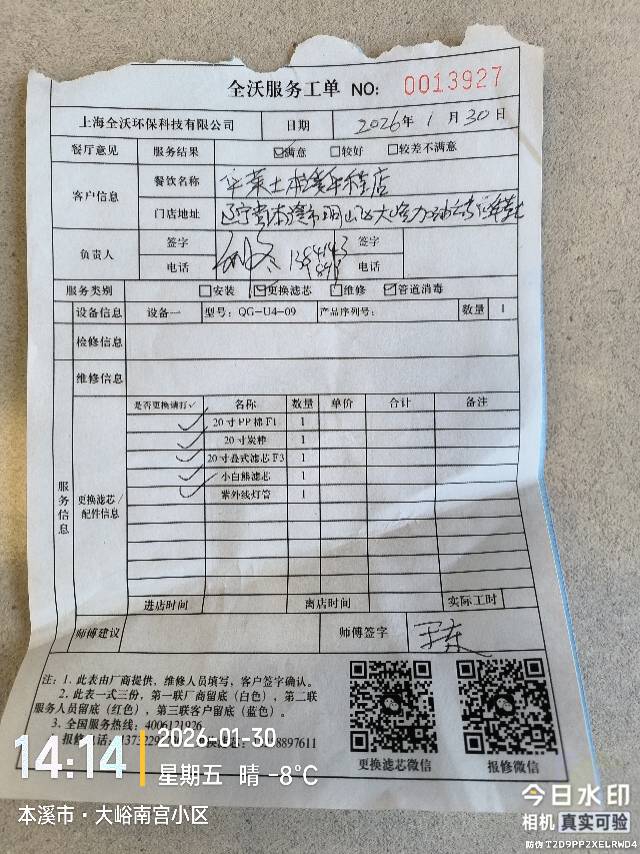 全沃服务工单 NO: 0013927
上海全沃环保科技有限公司 日期 2026年 1月 30日
餐厅意见 服务结果 ☑满意 □较好 □较差不满意
客户信息 餐饮名称 华莱士本溪 店
门店地址 辽宁省本溪市明山区大峪
负责人 签字 签字
电话 电话
服务类别 □安装 ☑更换滤芯 □维修 ☑管道消毒
设备信息 设备一 型号：QG-U4-09 产品序列号： 数量 1
检修信息
维修信息
服务信息 更换滤芯/配件信息
是否更换请打✓ 名称 数量 单价 合计 备注
✓ 20寸PP棉F1 1
✓ 20寸炭棒 1
✓ 20寸叠式滤芯F3 1
✓ 小白熊滤芯 1
✓ 紫外线灯管 1
进店时间 离店时间 实际工时
师傅建议 师傅签字
注：1. 此表由厂商提供，维修人员填写，客户签字确认。
2. 此表一式三份，第一联厂商留底（白色），第二联
服务人员留底（红色），第三联客户留底（蓝色）。
3. 全国服务热线：4006121926
更换滤芯微信 报修微信
14:14 2026-01-30
星期五 晴 -8℃
本溪市·大峪南宫小区
今日水印
相机 真实可验
防伪 T2D9PP2XELRWD4